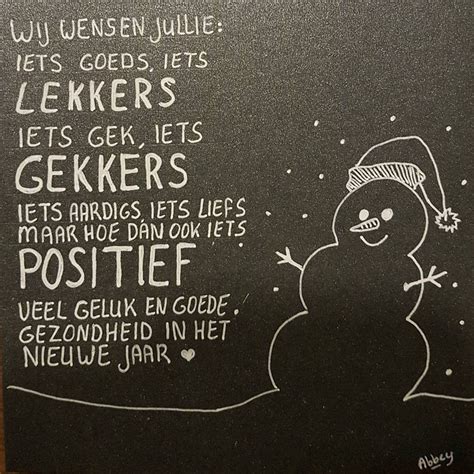 WIJ WENSEN JULLIE:
IETS GOEDS, IETS
LEKKERS
IETS GEK, IETS
GEKKERS
IETS AARDIGS, IETS LIEFS
MAAR HOE DÁN OOK IETS
POSITIEF
VEEL GELUK EN GOEDE.
GEZONDHEID IN HET
NIEUWE JAAR ♥
Abbey